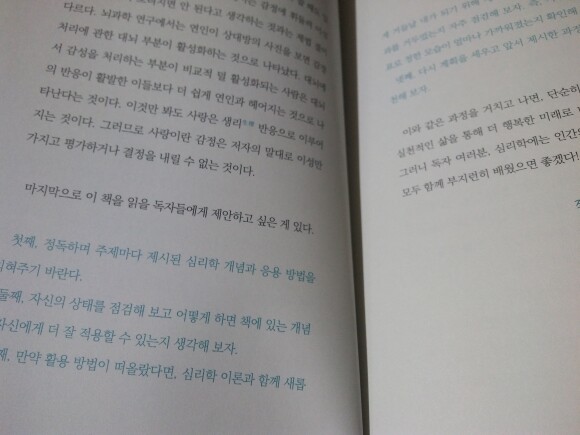 감정에 휘둘려 이성
안 된다고 생각하는 것과는
다르다. 뇌과학 연구에서는 연인이 상대방의 사진을 보면 감정
처리에 관한 대뇌 부분이 활성화하는 것으로 나타났다. 대뇌에
서 감성을 처리하는 부분이 비교적 덜 활성화되는 사람은 대뇌
의 반응이 활발한 이들보다 더 쉽게 연인과 헤어지는 것으로 나
타난다는 것이다. 이것만 봐도 사랑은 생리 반응으로 이루어
지는 것이다. 그러므로 사랑이란 감정은 저자의 말대로 이성만
가지고 평가하거나 결정을 내릴 수 없는 것이다.
마지막으로 이 책을 읽을 독자들에게 제안하고 싶은 게 있다.
첫째, 정독하며 주제마다 제시된 심리학 개념과 응용 방법을
익혀주기 바란다.
둘째, 자신의 상태를 점검해 보고 어떻게 하면 책에 있는 개념
자신에게 더 잘 적용할 수 있는지 생각해 보자.
째, 만약 활용 방법이 떠올랐다면, 심리학 이론과 함께 새롭
게 거듭날 내가 되기 위해
과를 거두었는지 자주 점검해 보자. 즉,
표로 정한 모습이 얼마나 가까워졌는지 확인해
넷째, 다시 계획을 세우고 앞서 제시한 과정
천해 보자.
이와 같은 과정을 거치고 나면, 단순히
실천적인 삶을 통해 더 행복한 미래로
그러니 독자 여러분, 심리학에는 인간
모두 함께 부지런히 배웠으면 좋겠다!